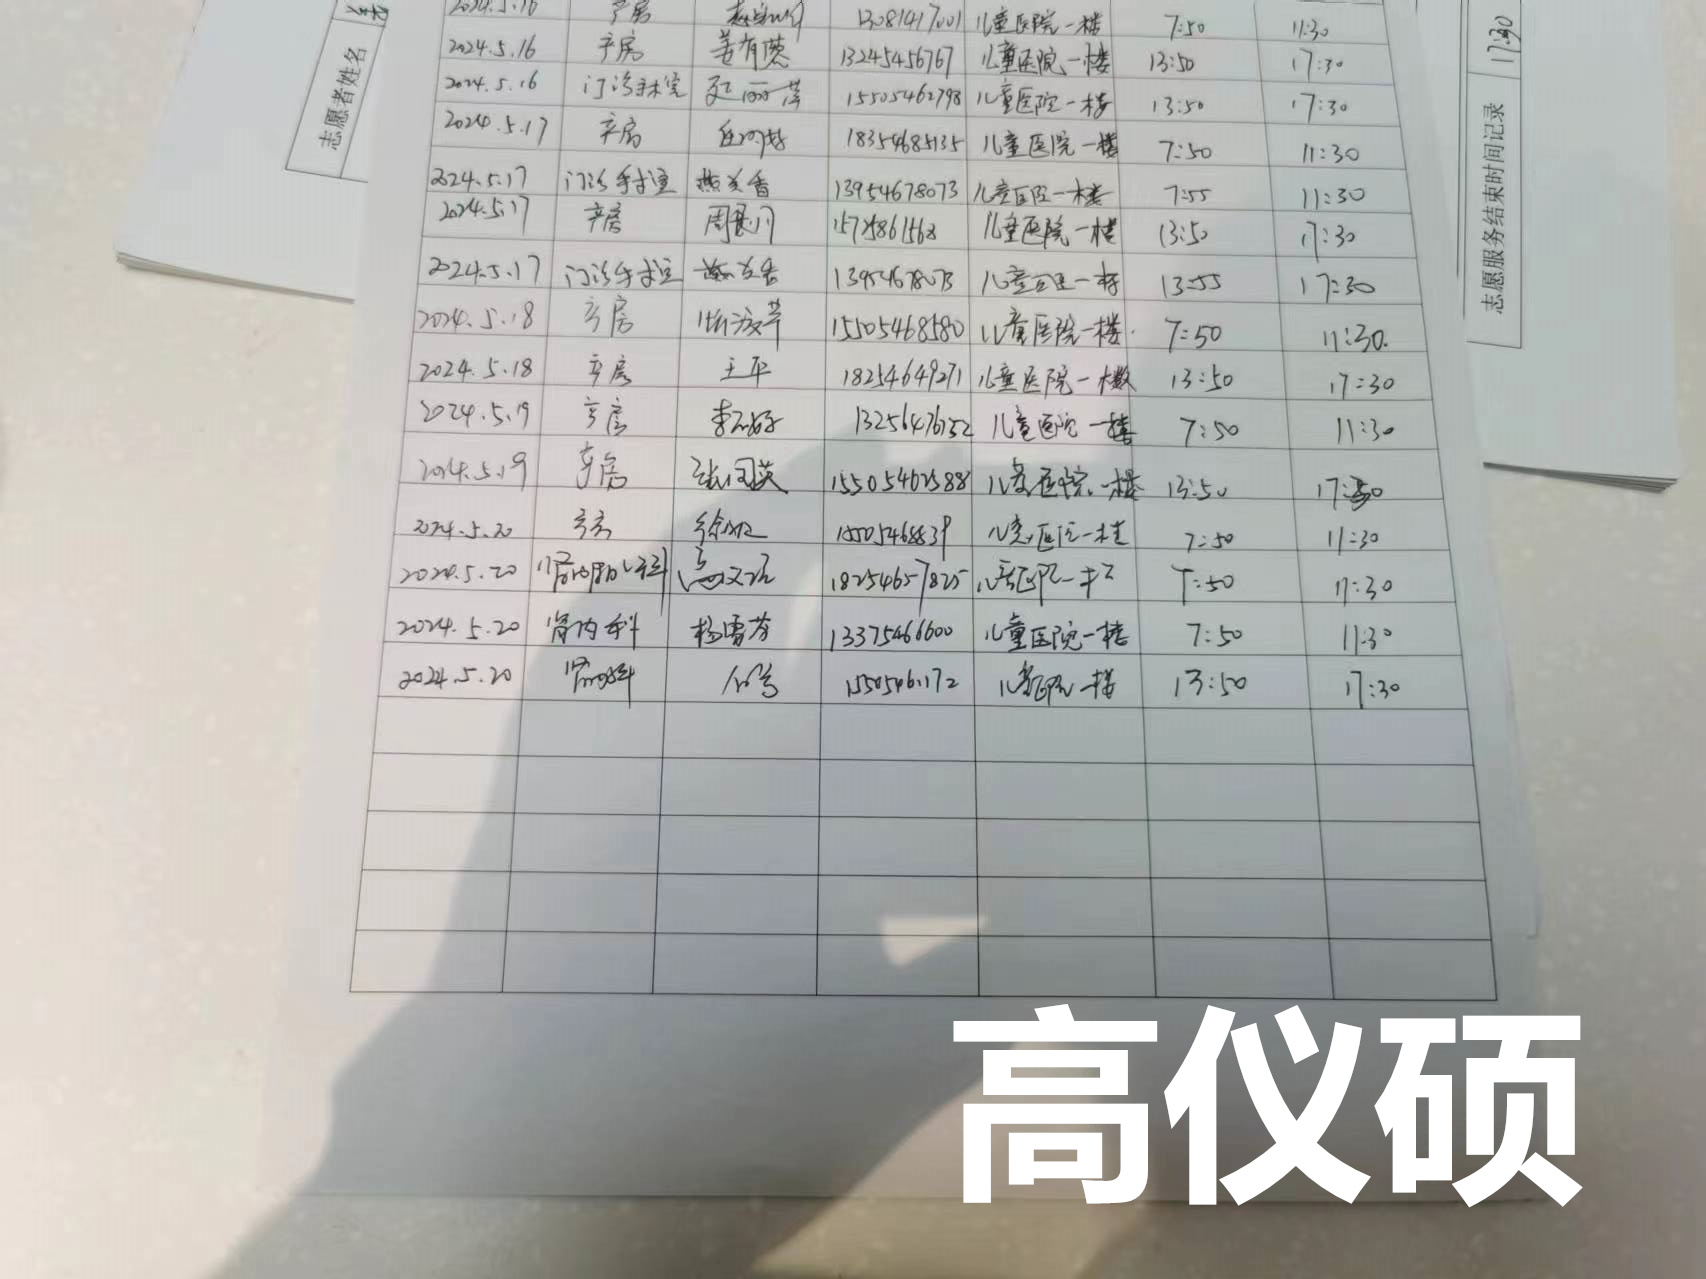 2024.5.16 产房 13081417001 儿童医院一楼 7:50 11:30
2024.5.16 产房 姜有慧 13245456767 儿童医院一楼 13:50 17:30
2024.5.16 门诊手术室 15505462798 儿童医院一楼 13:50 17:30
2024.5.17 产房 18354685135 儿童医院一楼 7:50 11:30
2024.5.17 门诊手术室 燕兰香 13954678073 儿童医院一楼 7:55 11:30
2024.5.17 产房 儿童医院一楼 13:50 17:30
2024.5.17 门诊手术室 燕兰香 13954678073 儿童医院一楼 13:55 17:30
2024.5.18 产房 15505468580 儿童医院一楼 7:50 11:30
2024.5.18 产房 王平 18254649271 儿童医院一楼 13:50 17:30
2024.5.19 产房 儿童医院一楼 7:50 11:30
2024.5.19 产房 15505462588 儿童医院一楼 13:50 17:30
2024.5.20 产房 15505468839 儿童医院一楼 7:50 11:30
2024.5.20 18254657825 7:50 11:30
2024.5.20 肾内科 杨雪芬 13375466600 儿童医院一楼 7:50 11:30
2024.5.20 肾内科 儿童医院一楼 13:50 17:30
志愿者姓名
志愿服务结束时间记录
17:30
高仪硕